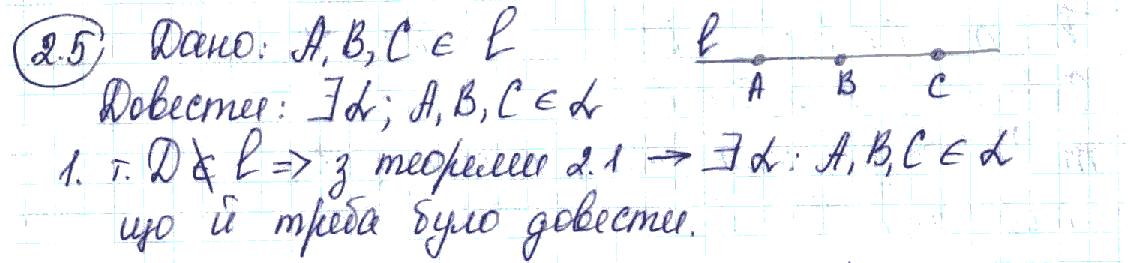 2.5 Дано: A, B, C ∈ l
l
A B C
Довести: ∃α; A, B, C ∈ α
1. т. D ∉ l => з теореми 2.1 → ∃α: A, B, C ∈ α
що й треба було довести.